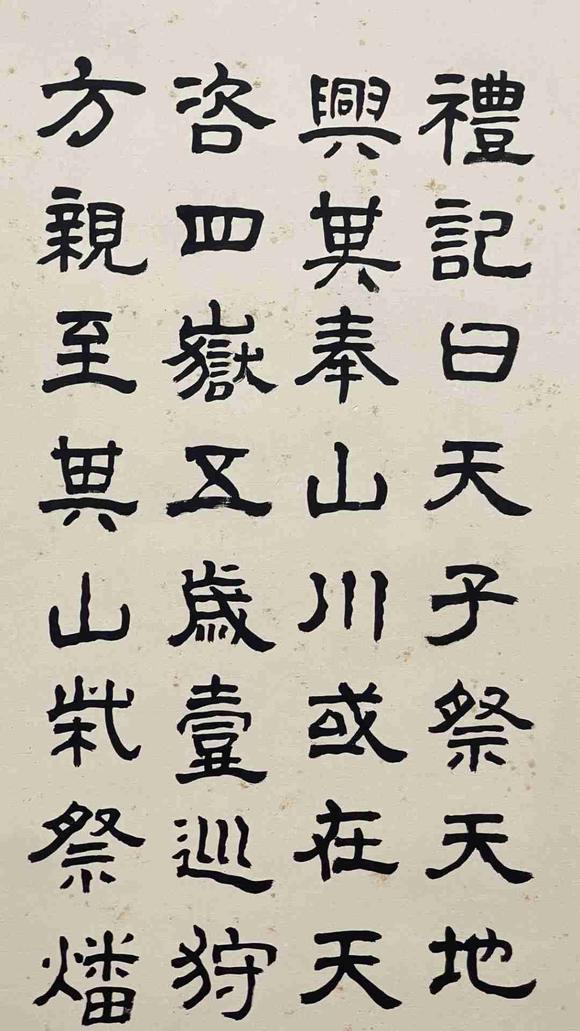 禮記曰天子祭天地
興其奉山川或在天
咨四嶽五歲壹巡狩
方親至其山柴祭燔